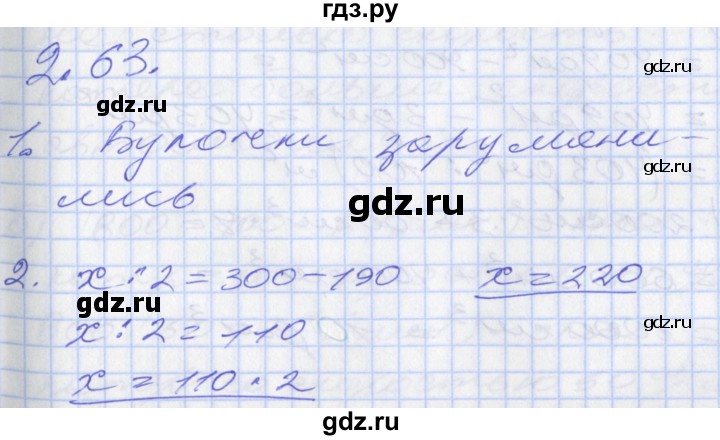 гдз.ру
2.63.
gdz.ru
gdz.ru
1. Булочки зарумяни-
лись
gdz.ru
gdz.ru
gdz.ru
2. x:2=300-190 x=220
x:2=110
gdz.ru
gdz.ru
x=110·2
gdz.ru